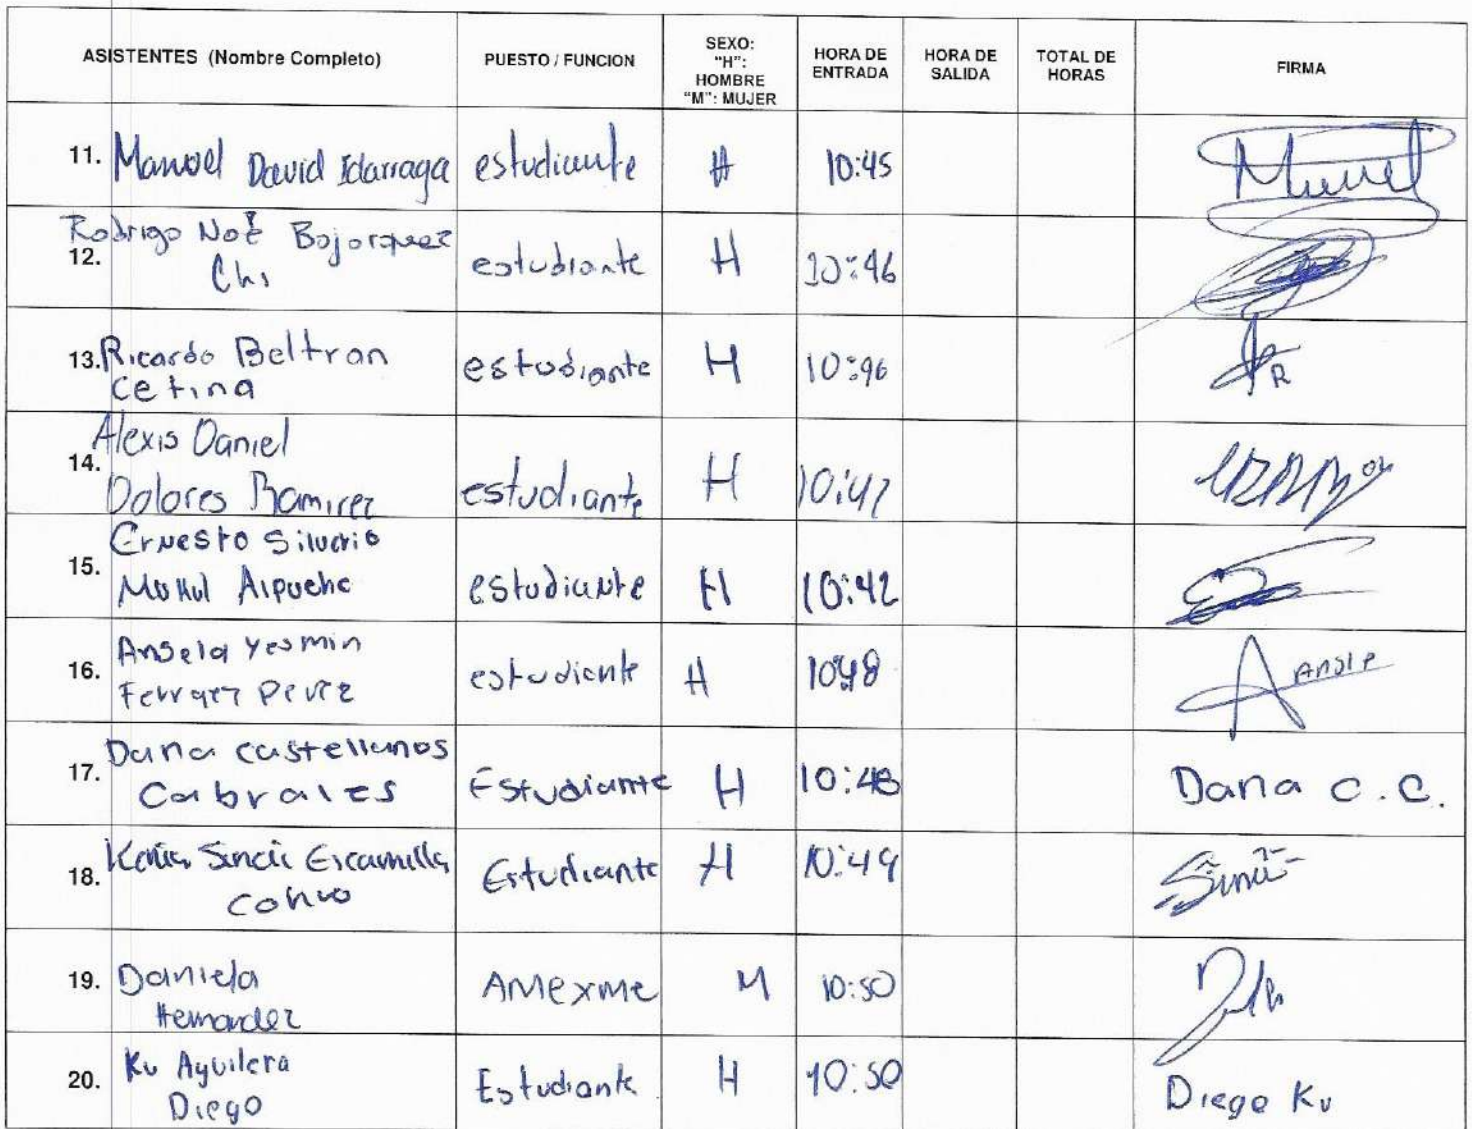 ASISTENTES (Nombre Completo) PUESTO / FUNCION SEXO: "H": HOMBRE "M": MUJER HORA DE ENTRADA HORA DE SALIDA TOTAL DE HORAS FIRMA
11. Manuel David Idarraga estudiante H 10:45 Manuel
Rodrigo Noé Bojorquez
12. Chi estudiante H 10:46
13. Ricardo Beltran estudiante H 10:46 R
Cetina
Alexis Daniel
14. Dolores Ramirez estudiante H 10:47
Ernesto Silverio
15. Mukul Alpuche estudiante H 10:42
Angela Yesmin
16. Ferraez Perez estudiante H 10:48 Angie
Dana Castellanos
17. Cabrales Estudiante H 10:48 Dana C.C.
18. Kenia Sinaí Escamilla Estudiante H 10:49 Sinaí
19. Daniela AMexme M 10:50
Hernandez
20. Ku Aguilera Estudiante H 10:50 Diego Ku
Diego